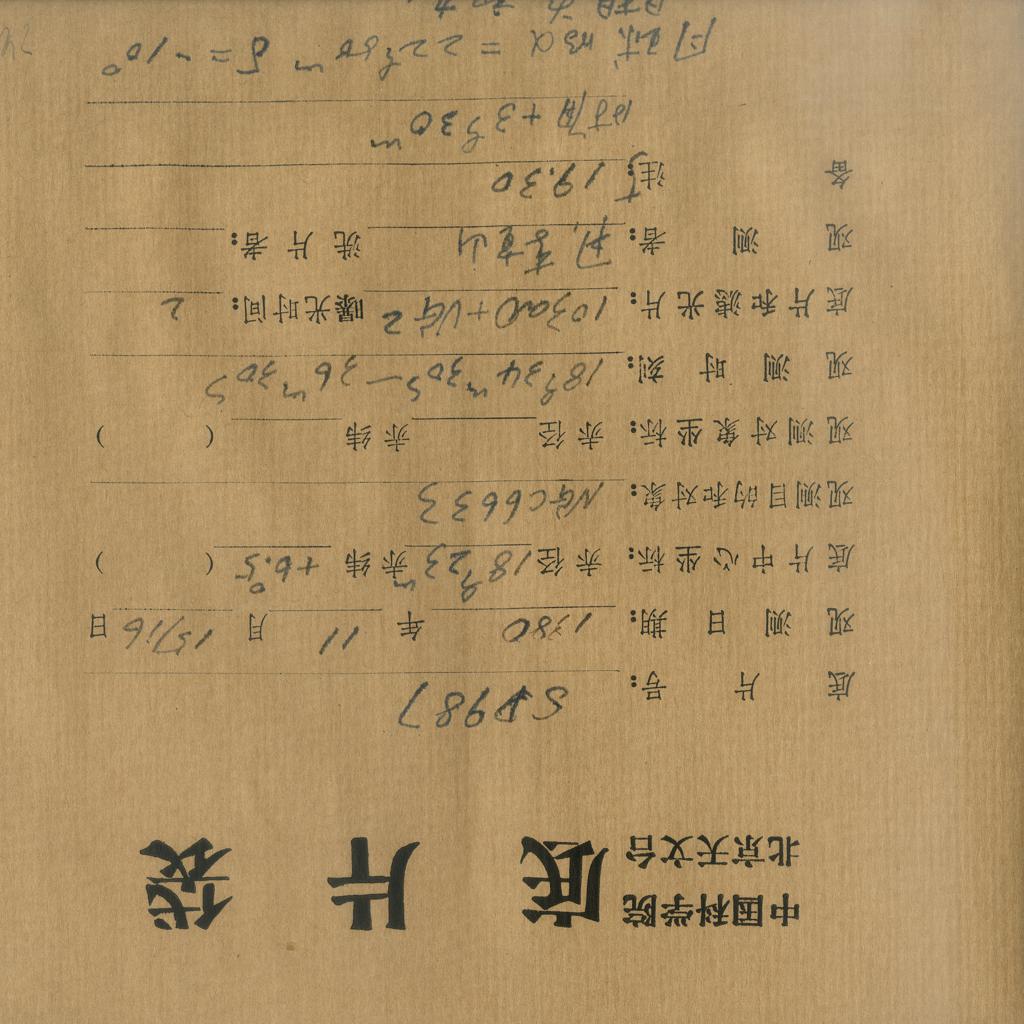 中国科学院
北京天文台
底片袋
底片号: SP987
观测日期: 1980年11月15/16日
底片中心坐标: 赤径18ʰ23ᵐ赤纬+6.°5( )
观测目的和对象: NGC6633
观测对象坐标: 赤径 赤纬 ( )
观测时刻: 18ʰ34ᵐ30ˢ—36ᵐ30ˢ
底片和滤光片: 103aD+VG2 曝光时间: 2
观测者: 洗片者:
备注: 19.30
时角+3ʰ30ᵐ
月球的α=22ʰ50ᵐ δ=-10°